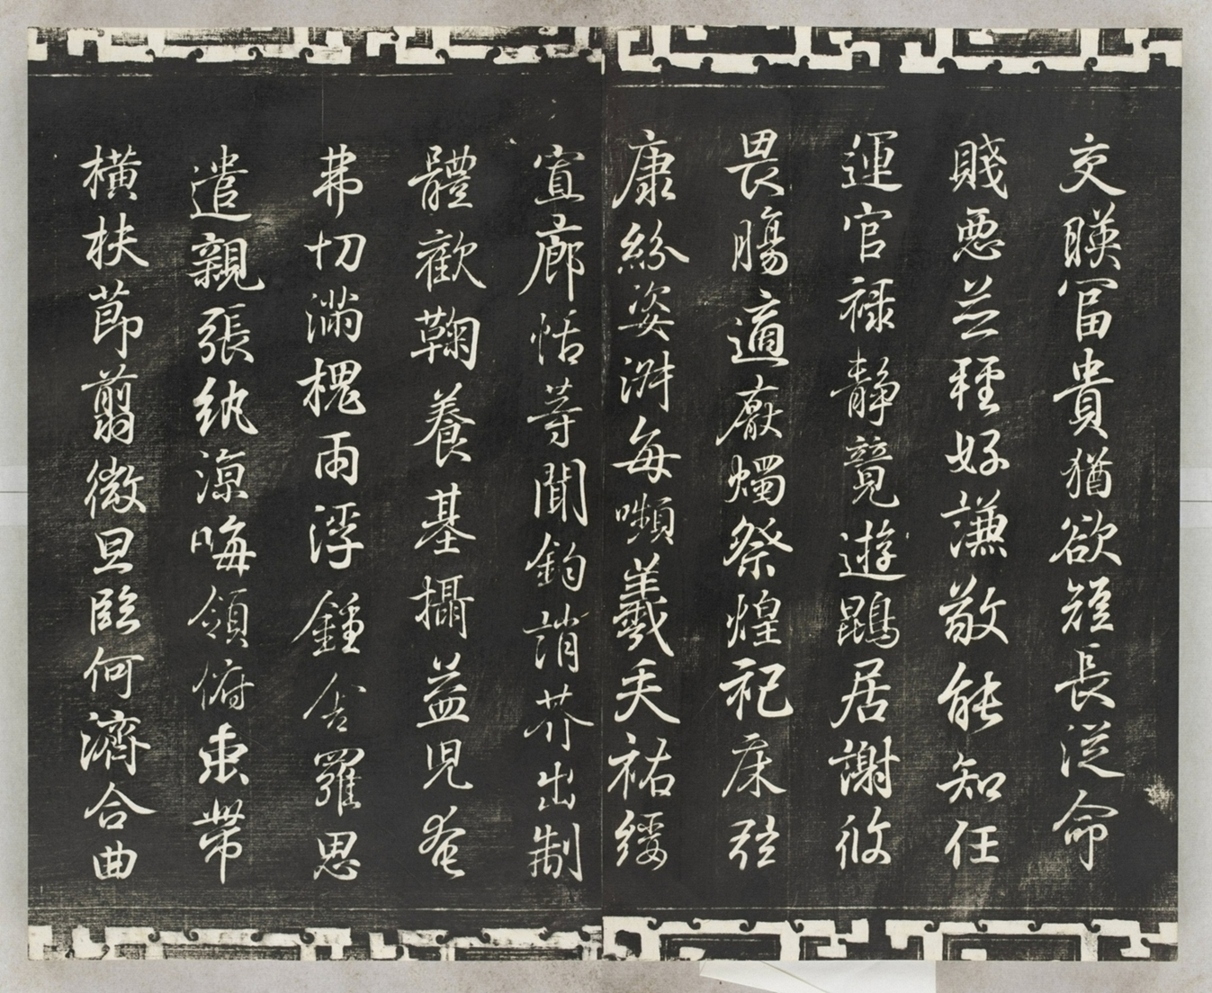 交映富貴猶欲短長從命
賤惡並種好謙敬能知任
運官祿靜競遊鵾居謝攸
畏腸適厭燭祭煌祀床弦
康紛姿淵每嚬羲夭祐纓
宣廊恬等聞鈞誚芥出制
體歡鞠養基攝益兒登
弗切滿槐雨浮鍾舍羅思
遣親張紈涼晦領俯束帶
橫扶節翦微旦臨何濟合曲